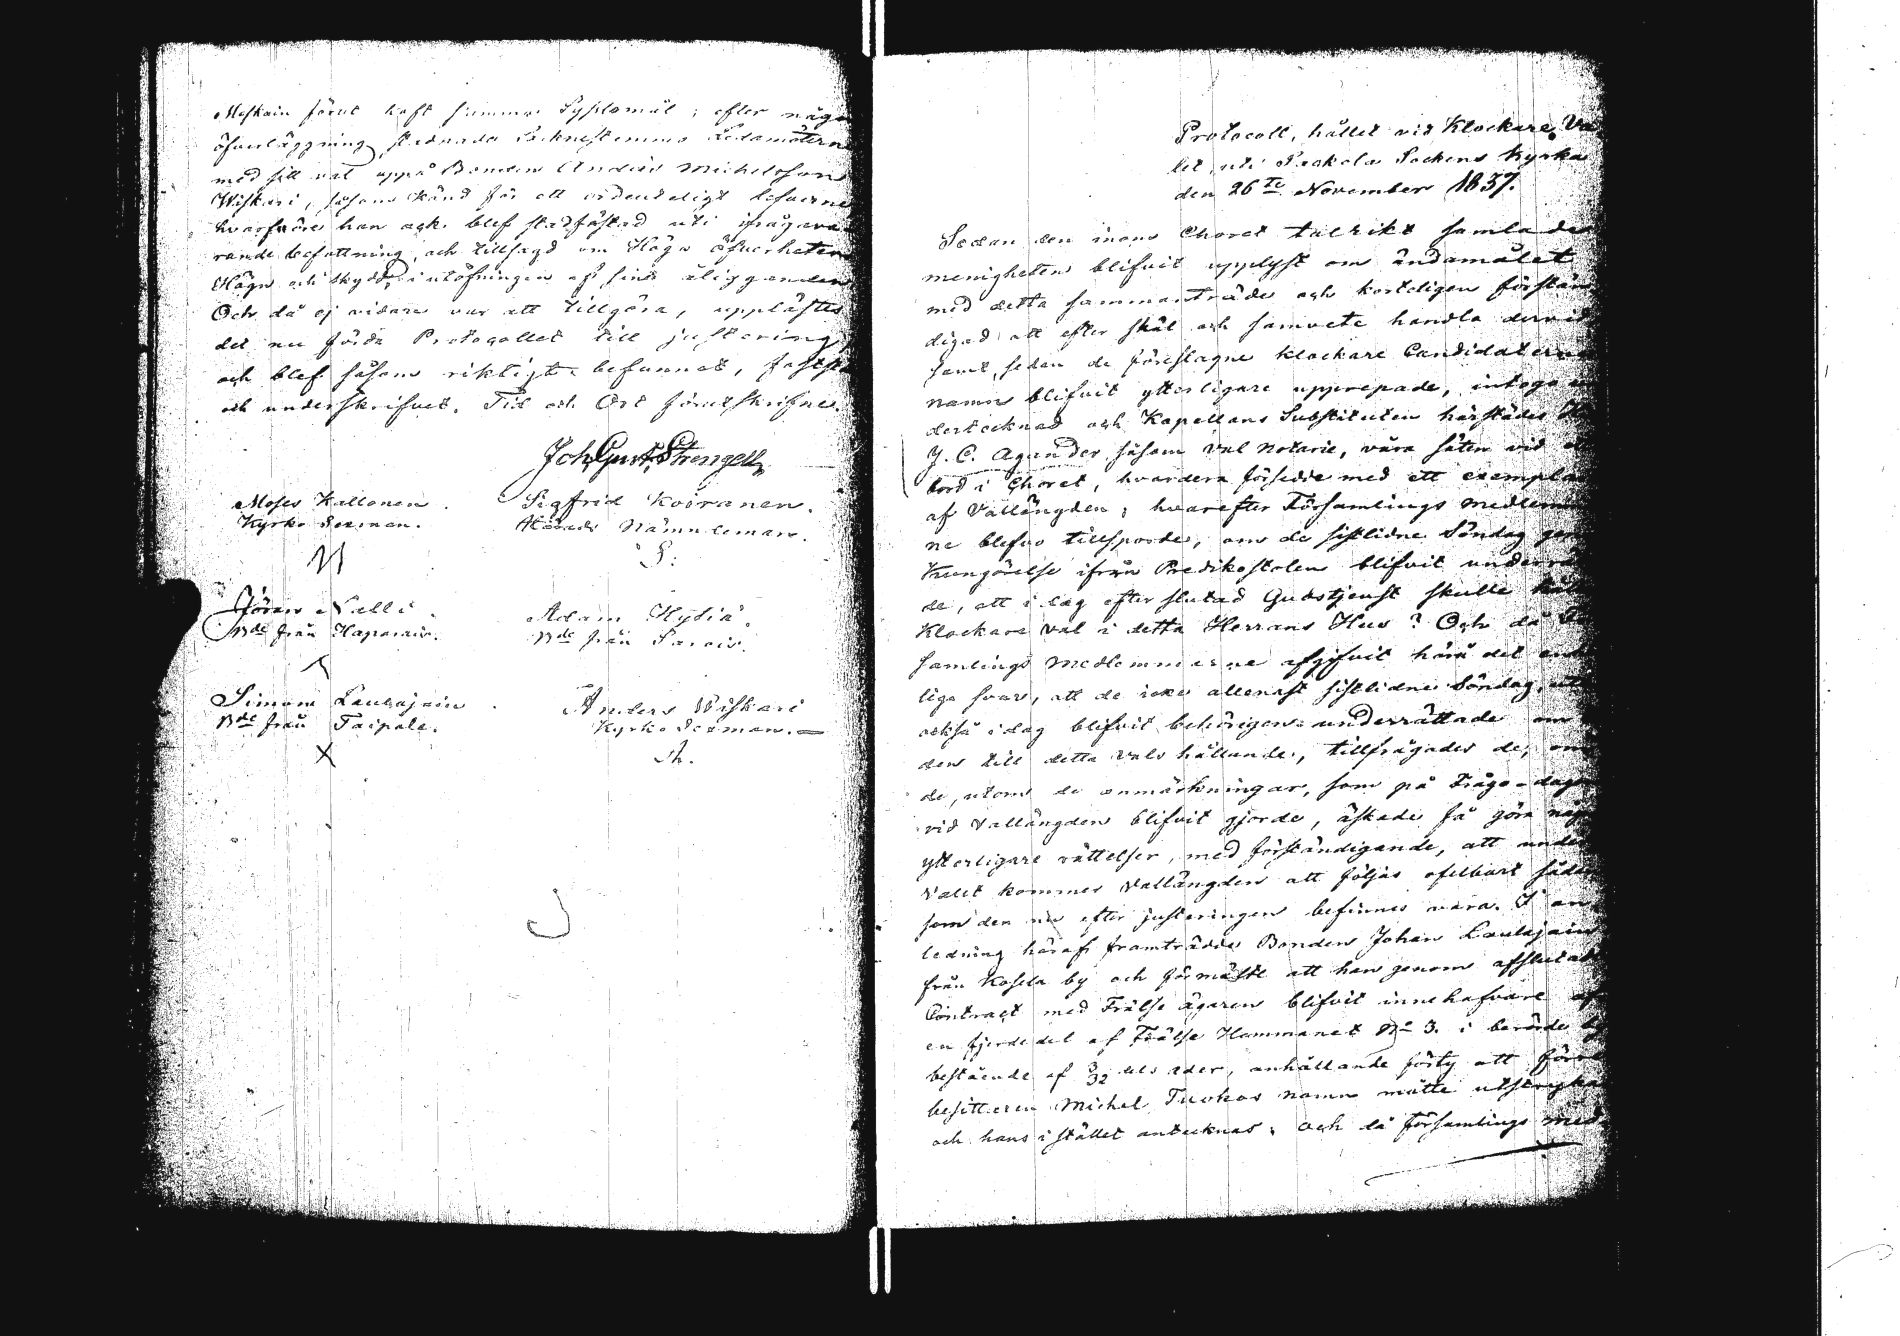 Meskain förut haft samma Sysslomål; efter någo
öfverläggning stadnade Socknestemmo Ledamötern
med sitt val uppå Bonden Anders Michelsson
Wiskari, såsom känd för ett ordenteligt lefverne
hvarföre han ock blef stadfästad uti ifrågava
rande befattning, och tillsagd om Höga Öfverheten
Hägn och skydd i utöfningen af sina åligganden
Och då ej vidare var att tillgöra, upplästes
det nu förda Protogollet till justering,
och blef såsom riktigt befunnet, fastst
och underskrifvet. Tid och Ort förutskrifne.
Joh Gust Strengell
Moses Kallonen
Sigfrid Koiranen.
Kyrko Sexman.
Härads Nämndeman.
S.
Jören Nalli
Adam Hydiä.
Bde från Haparais.
Bde från Sarois.
Simon Laulajain
Anders Wiskari
Bde från Taipale.
Kyrko Sexman.
X
A.
Protocoll, hållet vid Klockare Va
let, uti Sockens Kyrka
den 26te November 1837.
Sedan den inom Choret talrikt samlade
menigheten blifvit upplyst om ändamålet
med detta sammanträde och korteligen förstän
digad att efter skäl och samvete handla dervid
samt, sedan de föreslagne Klockare Candidaterne
namn blifvit ytterligare upprepade, intogo
dertecknad och Kapellans Substituten härstädes
J. C. Agander, såsom Val Notarie, våra säten vid
bord i Choret, hvardera försedde med ett exempla
af Vallängden; hvarefter Församlings medlem
ne blefvo tillsporde, om de sistlidne Söndag gen
Kungörelse ifrån Predikostolen blifvit underrä
de, att i dag efter slutad Gudstjenst skulle
Klockare val i detta Herrans Hus? Och då
samlings medlemmerne afgifvit härå det enhä
liga svar, att de icke allenast sistlidne Söndag, uta
också i dag blifvit behörigen underrättade om
den till detta vals hållande, tillfrågades de, om
de, utom de anmärkningar, som på Fråge-dagen
vid Vallängden blifvit gjorde, äskade få göra någ
ytterligare rättelser, med förständigande, att under
Valet kommer Vallängden att följas ofelbart sådan
som den nu efter justeringen befinnes vara. I an
ledning häraf framträdde Bonden Johan Laulajain
från Kosela by och förmälte att han genom afslutadt
Contract med Frälse ägaren blifvit innehafvare af
en fjerdedel af Frälse Hemmanet No 3. i berörde by
bestående af 3/32 dels ader, anhållande förty att förre
besittaren Michel Tuokos namn måtte utstrykas
och hans i stället antecknas; och då församlings med-